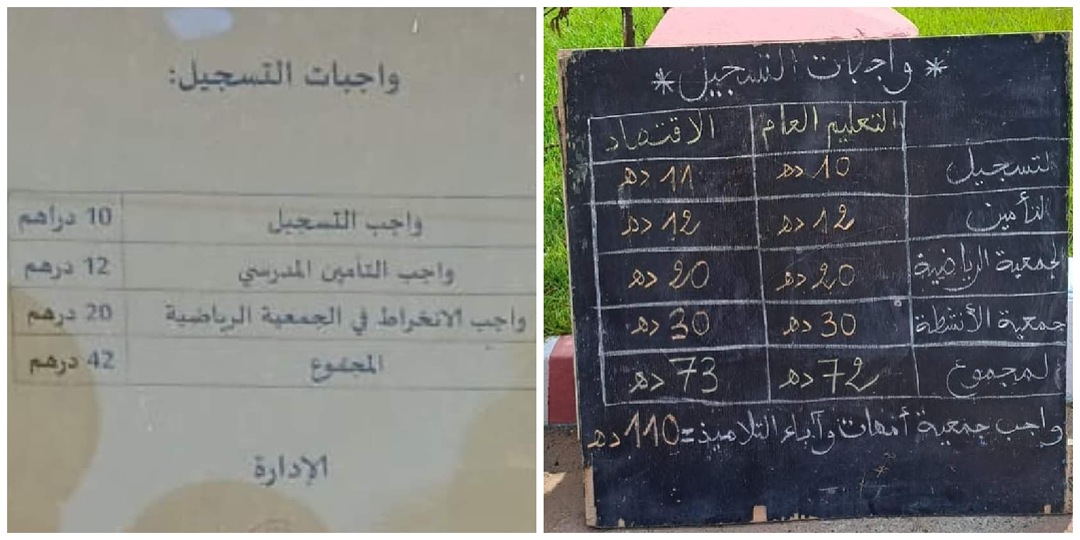 واجبات التسجيل:
واجب التسجيل 10 دراهم
واجب التأمين المدرسي 12 درهم
واجب الانخراط في الجمعية الرياضية 20 درهم
المجموع 42 درهم
الإدارة
* واجبات التسجيل *
التعليم العام الاقتصاد
التسجيل 10 دھ 11 دھ
التأمين 12 دھ 12 دھ
الجمعية الرياضية 20 دھ 20 دھ
جمعية الأنشطة 30 دھ 30 دھ
المجموع 72 دھ 73 دھ
واجب جمعية أمهات وآباء التلاميذ = 110 دھ